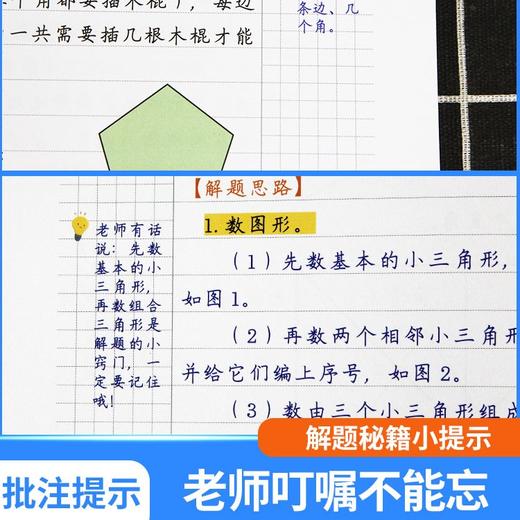 个角都要插木棍），每边
一共需要插几根木棍才能
条边、几
个角。
【解题思路】
1.数图形。
老师有话
说：先数
基本的小
三角形，
再数组合
三角形是
解题的小
窍门，一
定要记住
哦！
（1）先数基本的小三角形，
如图1。
（2）再数两个相邻小三角形
并给它们编上序号，如图2。
（3）数由三个小三角形组成
解题秘籍小提示
批注提示
老师叮嘱不能忘